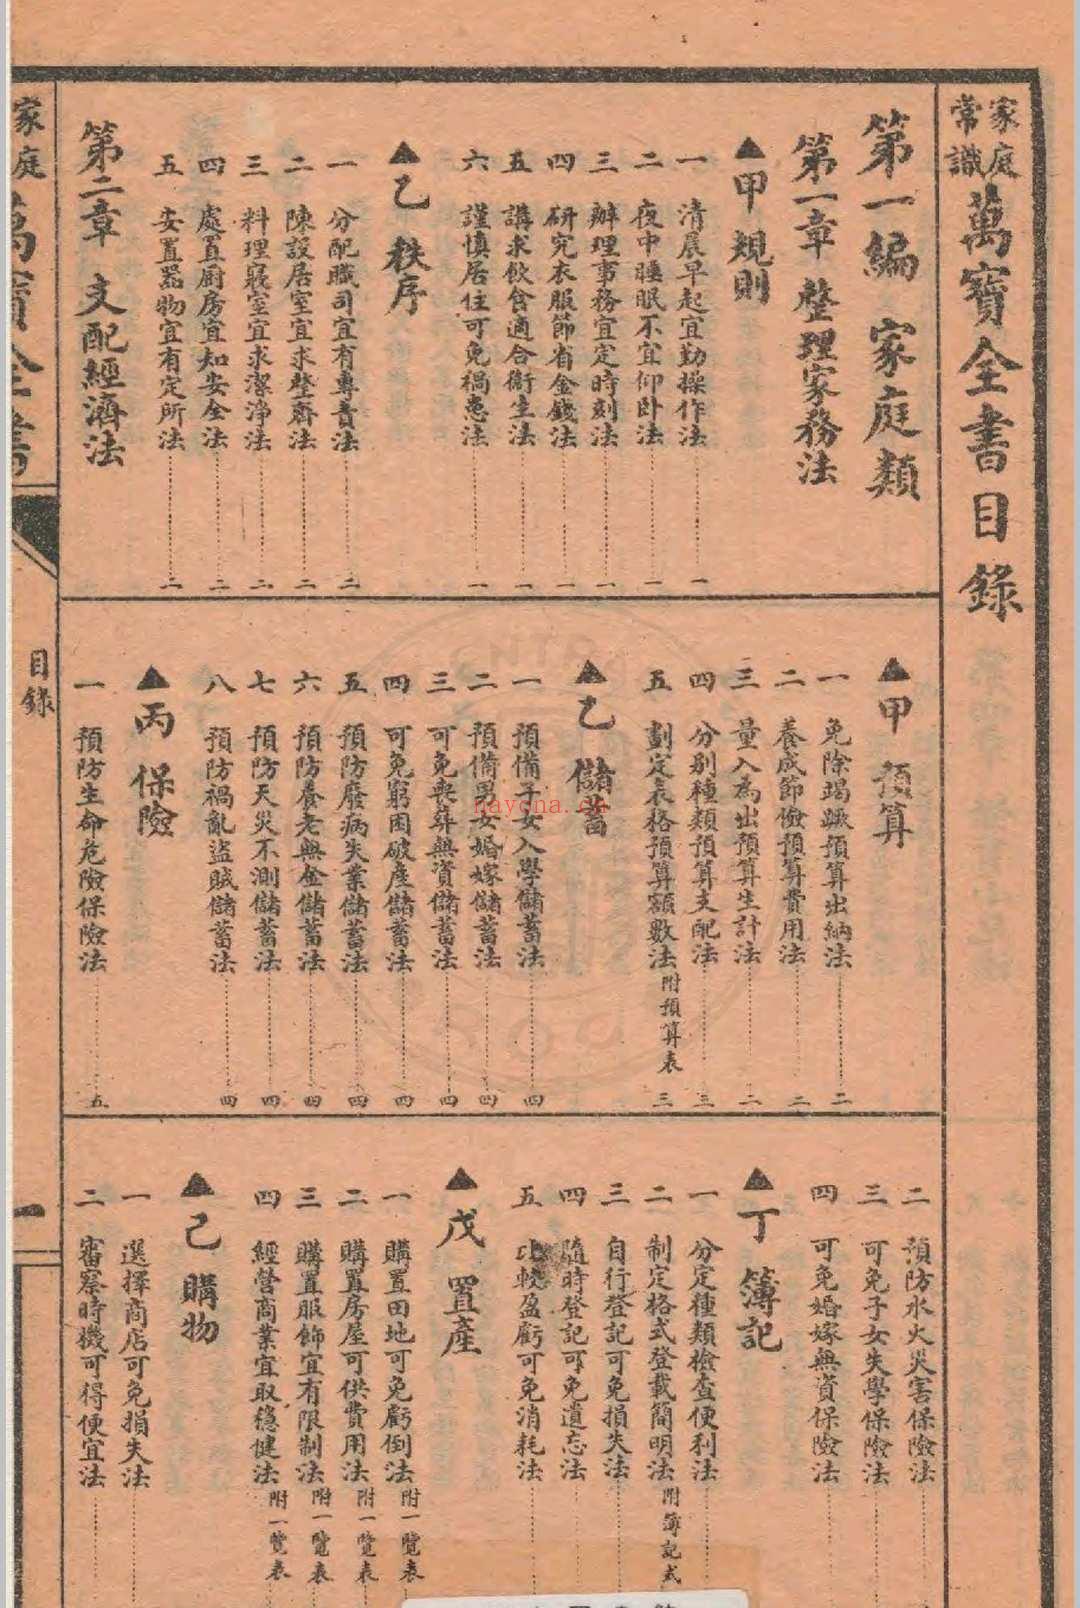 家庭常識 萬寶全書目錄
第一編 家庭類
第一章 整理家務法
▲甲 規則
一 清晨早起宜勤操作法 一
二 夜中睡眠不宜仰卧法 一
三 辦理事務宜定時刻法 一
四 研究衣服節省金錢法 一
五 講求飲食適合衞生法 一
六 謹慎居住可免禍患法 一
▲乙 秩序
一 分配職司宜有專責法 二
二 陳設居室宜求整齊法 二
三 料理寢室宜求潔淨法 二
四 處置廚房宜知安全法 二
五 安置器物宜有定所法 二
第二章 支配經濟法
▲甲 預算
一 免除竭蹶預算出納法 二
二 養成節儉預算費用法 二
三 量入為出預算生計法 二
四 分別種類預算支配法 三
五 劃定表格預算額數法附預算表 三
▲乙 儲蓄
一 預備子女入學儲蓄法 四
二 預備男女婚嫁儲蓄法 四
三 可免喪葬無資儲蓄法 四
四 可免窮困破產儲蓄法 四
五 預防廢病失業儲蓄法 四
六 預防養老無金儲蓄法 四
七 預防天災不測儲蓄法 四
八 預防禍亂盜賊儲蓄法 四
▲丙 保險
一 預防生命危險保險法 五
二 預防水火災害保險法
三 可免子女失學保險法
四 可免婚嫁無資保險法
▲丁 簿記
一 分定種類檢查便利法
二 制定格式登載簡明法附簿記式
三 自行登記可免損失法
四 隨時登記可免遺忘法
五 比較盈虧可免消耗法
▲戊 置產
一 購置田地可免虧倒法附一覽表
二 購置房屋可供費用法附一覽表
三 購置服飾宜有限制法附一覽表
四 經營商業宜取穩健法附一覽表
▲己 購物
一 選擇商店可免損失法
二 審察時機可得便宜法
家庭 萬寶全書
目錄
一
nayona.cn